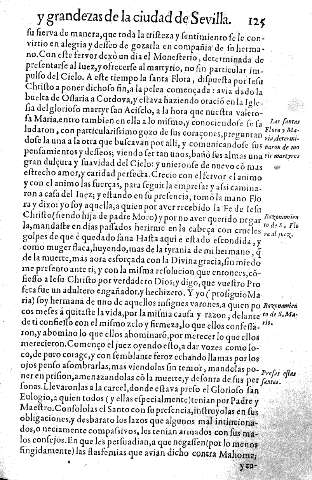 y grandezas de la ciudad de Sevilla. 125
su sierva de manera, que toda la tristeza y sentimiento se le con-
virtio en alegria y desseo de gozarla en compañia de su herma-
no. Con este fervor dexò un dia el Monesterio, determinada de
presentarse al Iuez, y ofrecerse al martyrio, no sin particular im-
pulso del Cielo. A este tiempo la santa Flora, dispuesta por Iesu
Christo a poner dichoso fin, a la pelea comença: avia dado la
buelta de Ossaria a Cordova, y estava haziendo oraciō en la Igle-
sia del glorioso martyr san Acisclo, a la hora que nuestra valero-
sa Maria, entro tambien en ella a lo mismo, y conociendose se sa
ludaron, con particularissimo gozo de sus coraçones, preguntan
dose la una a la otra que buscavan por alli, y comunicandose sus
pensamientos y desseos, viendo ser tan unos, bañò sus almas una
gran dulçura y suavidad del Cielo: y unieronse de nuevo cō mas
estrecho amor, y caridad perfecta. Crecio con el fervor el animo
y con el animo las fuerças, para seguir la empresa: y assi camina-
ron a casa del Iuez; y estando en su presencia, tomò la mano Flo
ra y dixo: yo soy aquella, a quien por aver recebido la Fe de Iesu
Christo (siendo hija de padre Moro) y por no aver querido negar
la, mandaste en dias passados herirme en la cabeça con crueles
golpes de que è quedado sana. Hasta aqui e estado escondida, y
como muger flaca, huyendo, mas de la tyrania de mi hermano, q̃
de la muerte, mas aora esforçada con la Divina gracia, sin miedo
me presento ante ti, y con la misma resolucion que entonces, cō-
fiesso a Iesu Christo por verdadero Dios; y digo, que vuestro Pro
feta fue un adultero engañador, y hechizero. Y yo (prosiguio Ma
ria) soy hermana de uno de aquellos insignes varones, a quien po
cos meses à quitaste la vida, por la misma causa y razon, delante
de ti confiesso con el mismo zelo y firmeza, lo que ellos confessa-
ron, y abomino lo que ellos abominarō, por merecer lo que ellos
merecieron. Començò el juez oyendo esto, a dar vozes como lo-
co, de puro corage, y con semblante feroz echando llamas por los
ojos pensò assombrarlas, mas viendolas sin temor, mandolas po-
ner en prision, amenazandolas cō la muerte, y desonra de sus per
sonas. Llevaronlas a la carcel, donde estava preso el Glorioso san
Eulogio, a quien todos (y ellas especialmente) tenian por Padre y
Maestro. Consololas el Santo con su presencia, instruyolas en sus
obligaciones, y desbarato los lazos que algunos mal intinciona-
dos, o neciamente compassivos, les tenian armados con sus ma-
los consejos. En que les persuadian, a que negassen (por lo menos
fingidamente) las blasfemias que avian dicho contra Mahoma;
y co-
Las santas
Flora y Ma-
ria, determi-
naron de mo
rir martyres
Razonamien
to de S. Flo
ra al juez.
Razonamien
to de S. Ma-
ria.
Presas estas
santas.